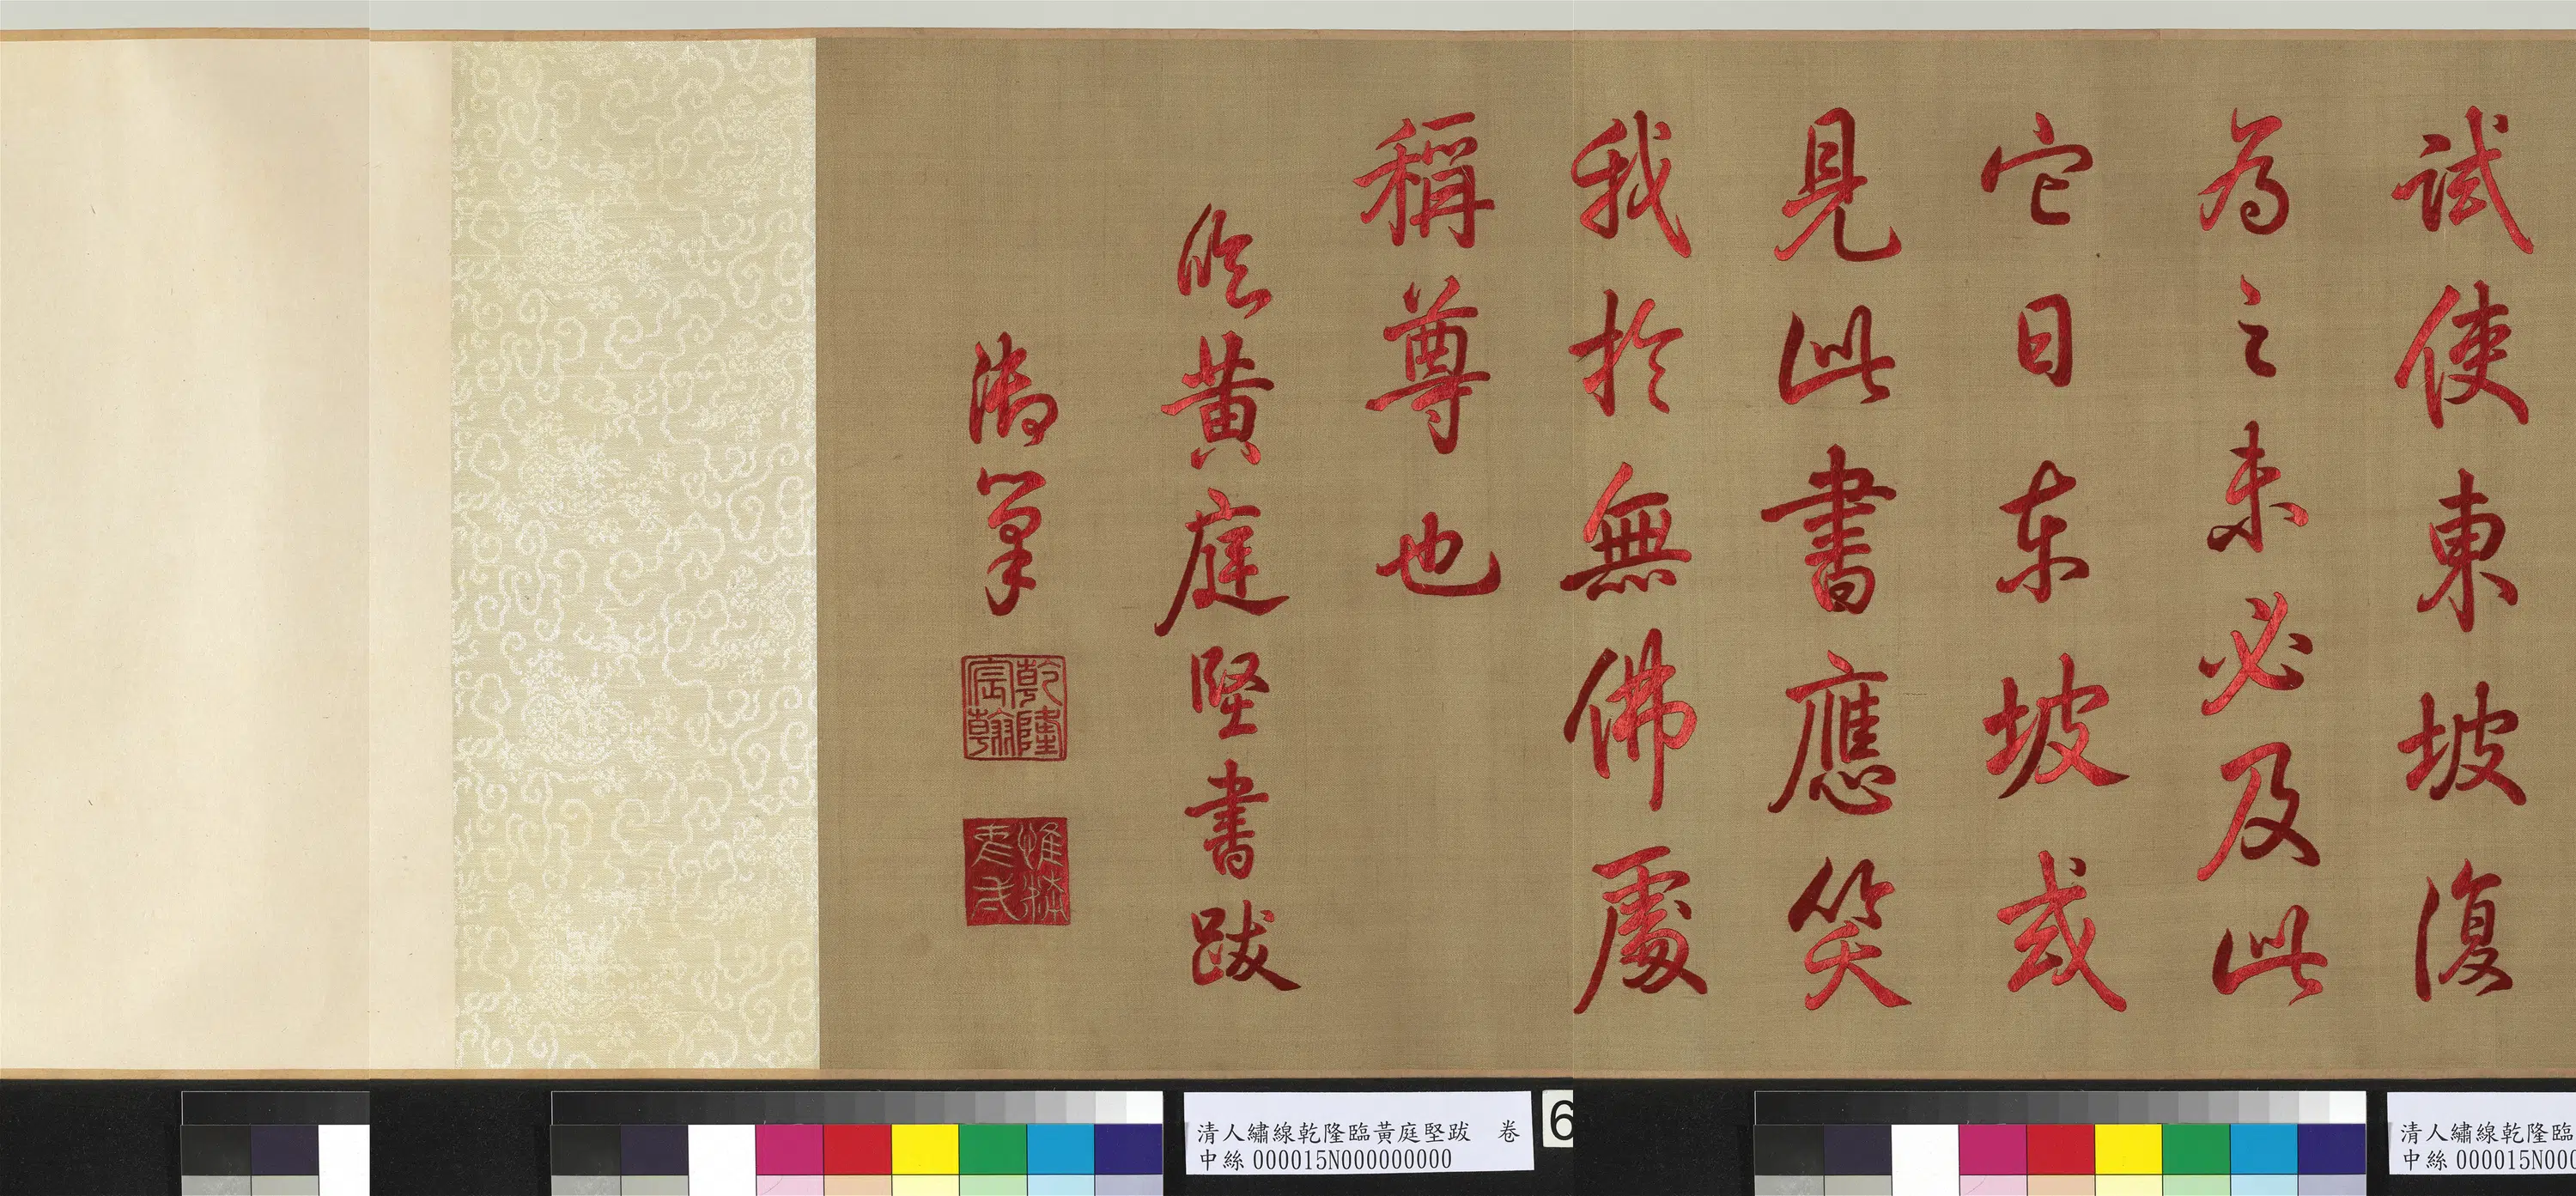 試使東坡復
為之未必及此
它日东坡或
見此書應笑
我於無佛處
稱尊也
臨黃庭堅書跋
御筆
乾隆
宸翰
惟精
惟一
清人繡線乾隆臨黃庭堅跋 卷
中絲000015N000000000
6
清人繡線乾隆臨
中絲000015N000